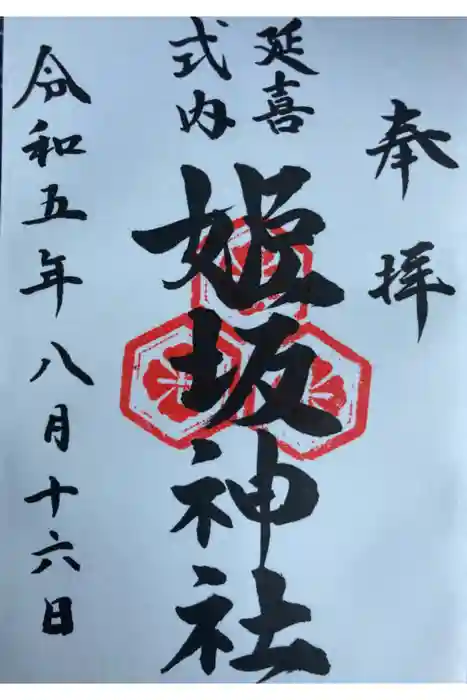 奉拝
延喜
式内
姫坂神社
令和五年八月十六日